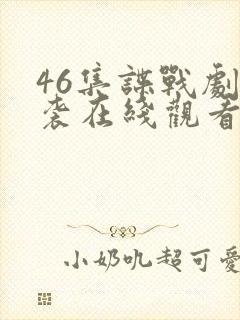 46集諜戰劇
袭在綫觀看
小奶吼超可愛